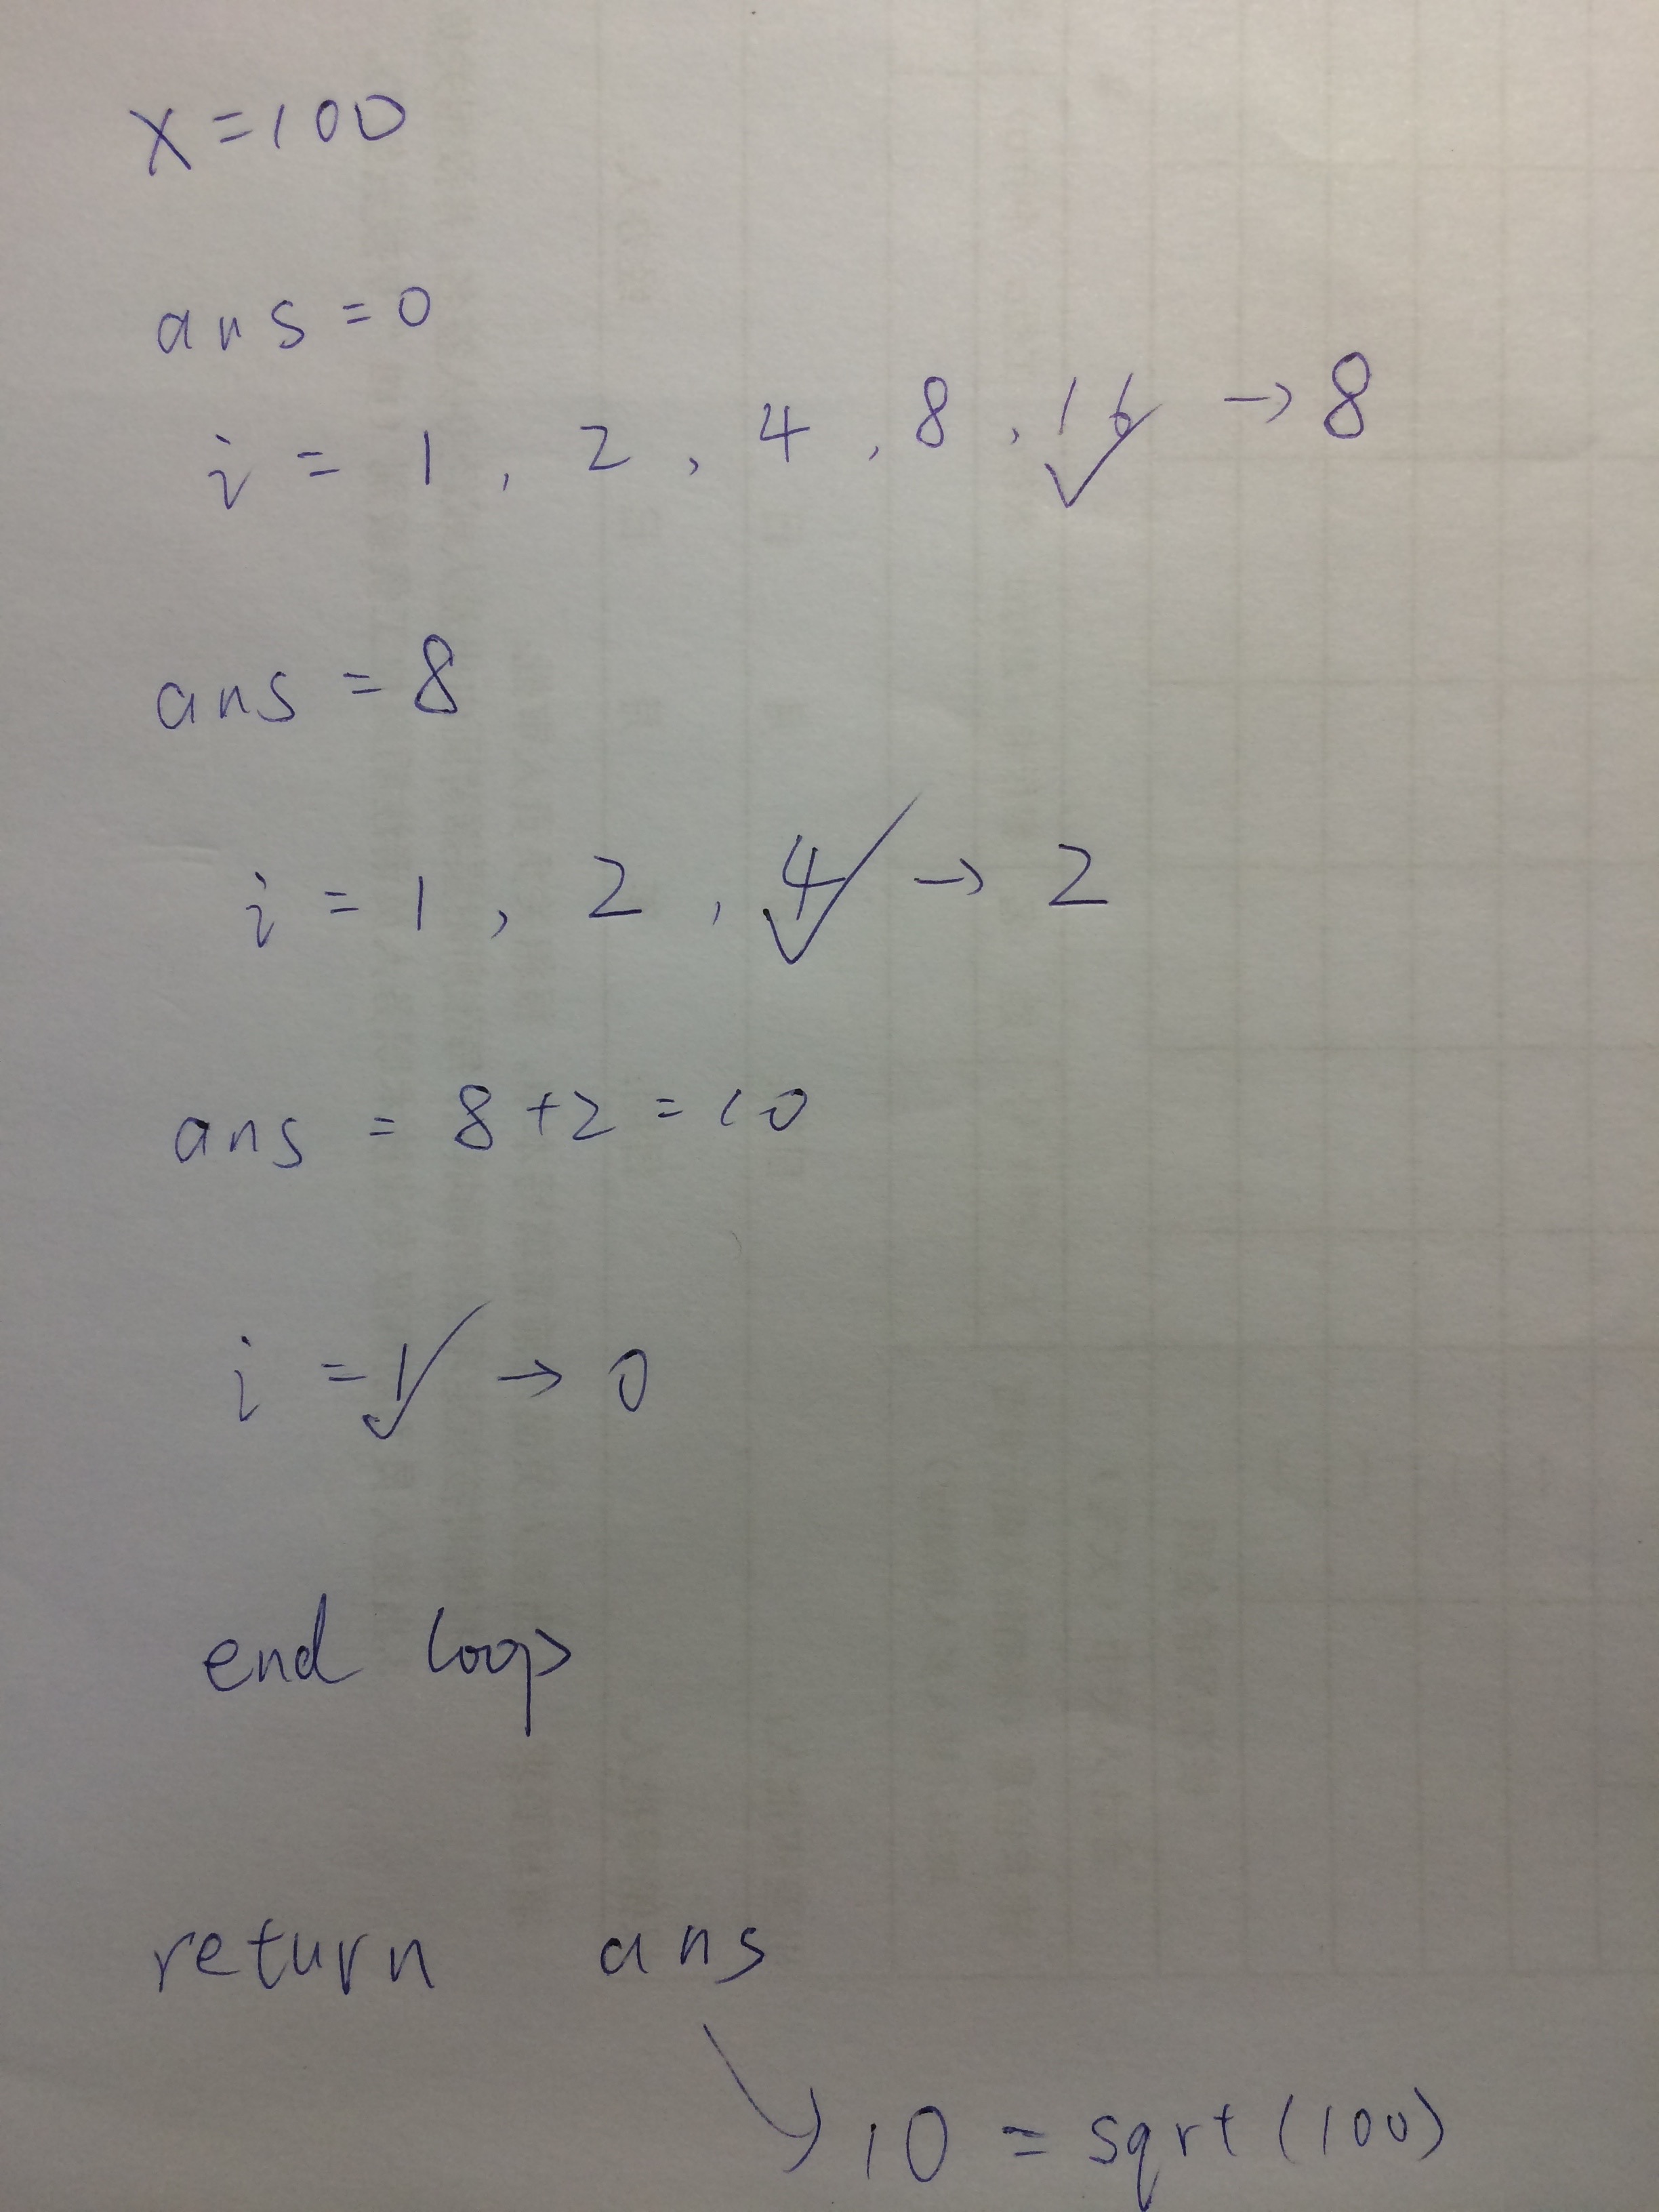 x=100
ans=0
i = 1, 2, 4, 8, 16 → 8
ans = 8
i = 1, 2, 4 → 2
ans = 8+2=10
i = 1 → 0
end loop
return ans
10 = sqrt(100)